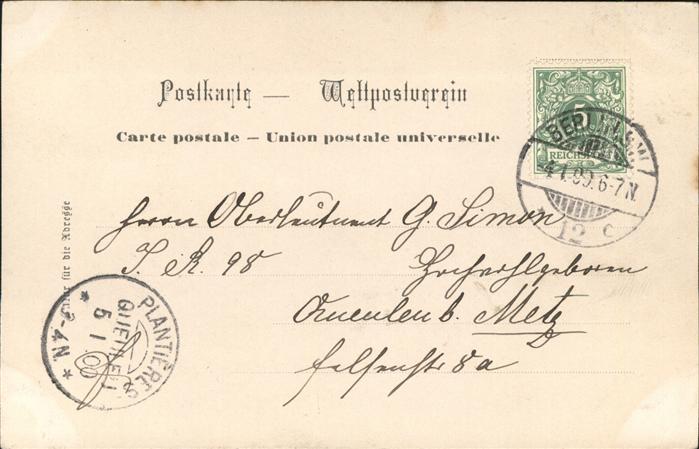 Postkarte — Weltpostverein
Carte postale – Union postale universelle
5
REICHSPOST
BERLIN S.W.
4.1.99.6-7N.
12 c
für die Adresse
Herrn Oberleutnant G. Simon
I. R. 98
Hochwohlgeboren
Queulen b. Metz
Felsenstr 8a
PLANTIÈRES
QUEULEU
5 1
3-4N.